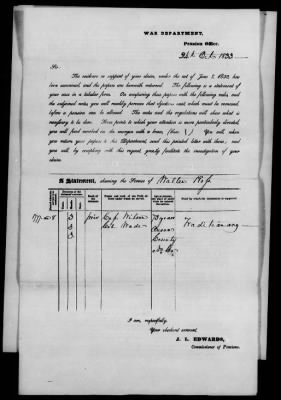 WAR DEPARTMENT,
Pension Office,
24th Oct. 1833
Sir:
The evidence in support of your claim, under the act of June 7, 1832, has
been examined, and the papers are herewith returned. The following is a statement of
your case in a tabular form. On comparing these papers with the following rules, and
the subjoined notes, you will readily perceive that objections exist, which must be removed
before a pension can be allowed. The notes and the regulations will shew what is
necessary to be done. Those points to which your attention is more particularly directed,
you will find marked in the margin with a brace, (thus: } ) You will, when
you return your papers to this Department, send this printed letter with them; and
you will, by complying with this request, greatly facilitate the investigation of your
claim.
A Statement, shewing the Service of Walter
1777 & 8 3 priv Capt. Wilson Traditionary
3 Col. Wade
3 County
I am, respectfully,
Your obedient servant,
J. L. EDWARDS,
Commissioner of Pensions.